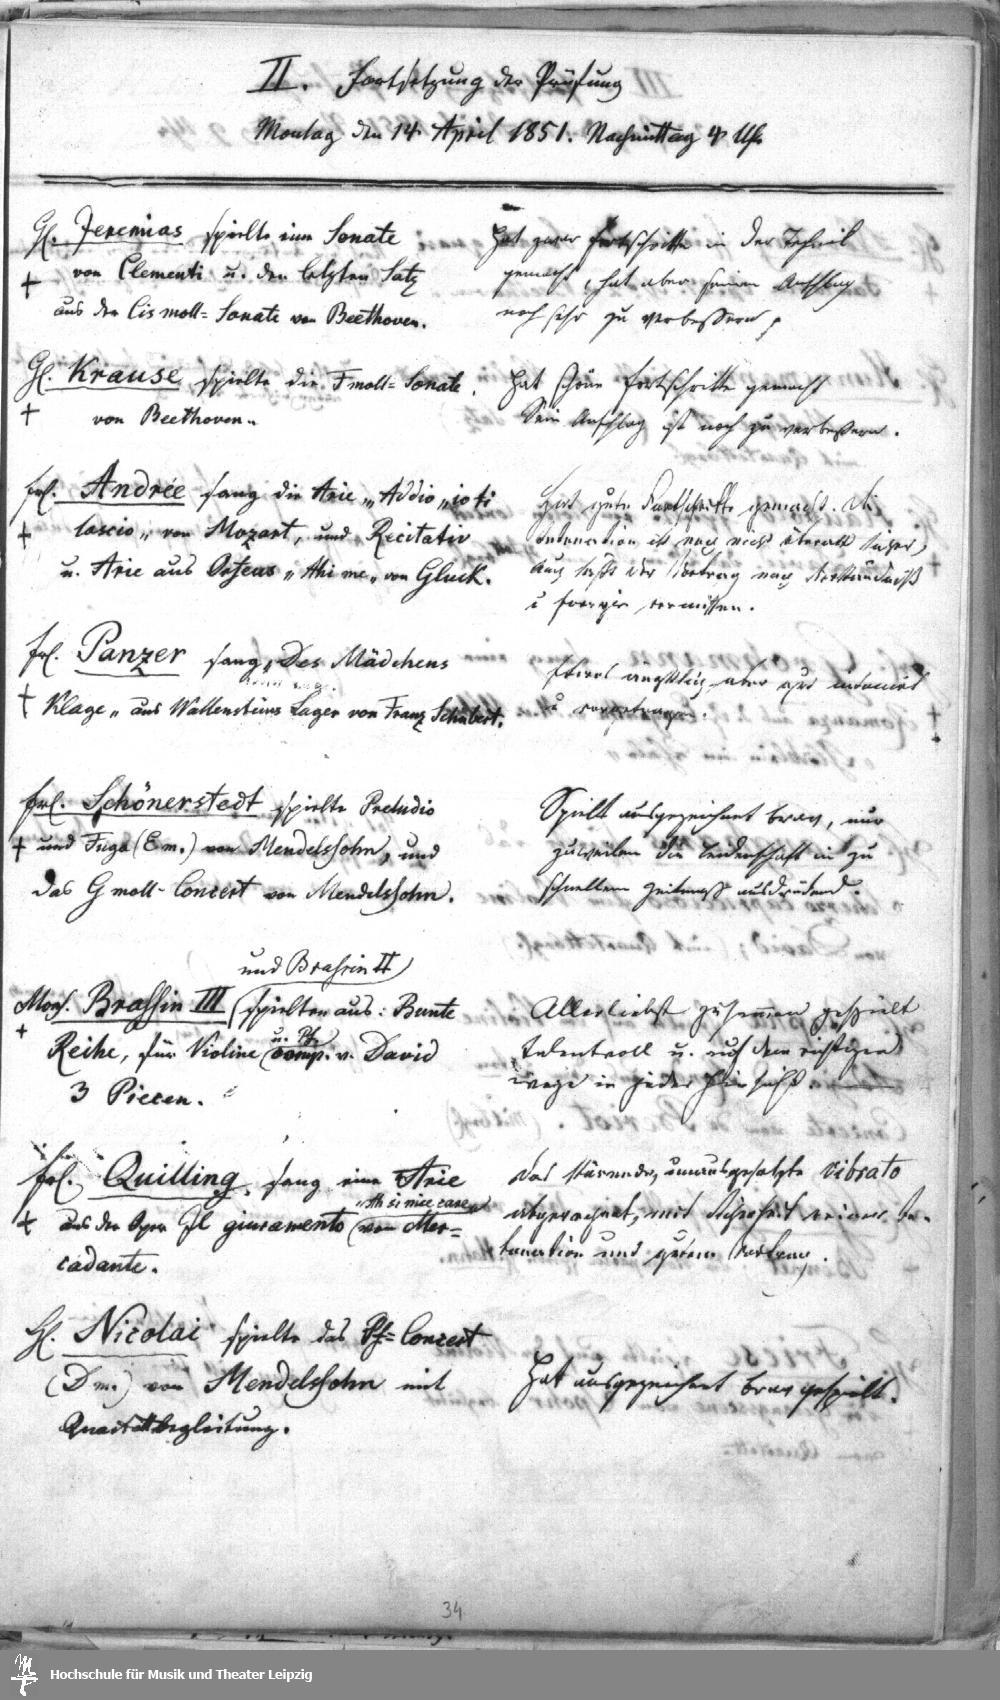 II. Fortsetzung der Prüfung
Montag den 14 April 1851. Nachmittag 4 Uhr
H. Jeremias spielte eine Sonate
von Clementi u. den letzten Satz
aus der Cis moll= Sonate von Beethoven.
Hat zwar Fortschritte in der Technik
gemacht, hat aber seinen Anschlag
noch sehr zu verbessern,
H. Krause spielte die F moll= Sonate
von Beethoven.
Hat schöne Fortschritte gemacht
Sein Anschlag ist noch zu verbessern.
Frl. Andrée sang die Arie „Addio „io ti
lascio„ von Mozart, und Recitativ
u. Arie aus Orfeus „Ahi me„ von Gluck.
Hat gute Fortschritte gemacht. Die
Intonation ist noch nicht überall sicher,
auch läßt der Vortrag noch Verständniß
u Energie vermissen.
Frl. Panzer sang „Des Mädchens
Klage„ aus Wallensteins Lager von Franz Schubert.
Etwas ängstlich aber gut intonirt
u vorgetragen.
Frl. Schönerstedt spielte Preludio
und Fuga (E m.) von Mendelssohn, und
das G moll- Concert von Mendelssohn.
Spielt ausgezeichnet brav, nur
zuweilen die Leidenschaft in zu
schnellem Zeitmaß ausdrückend.
und Brassin II)
Mons. Brassin III (spielten aus: Bunte
Reihe, für Violine u. Pf. (comp. v. David
3 Piecen.
Allerliebst zusammen gespielt
talentvoll u. auf dem richtigen
Wege in jeder Hinsicht.
Frl. Quilling, sang eine Arie
„Ah si mie care„
aus der Oper Il giuramento (von Mer=
cadante.
Das störende, unausgesetzte Vibrato
abgerechnet, mit Sicherheit reiner In-
tonation und gutem Vortrag.
H. Nicolai spielte das Pf= Concert
(D m.) von Mendelssohn mit
Quartettbegleitung.
Hat ausgezeichnet brav gespielt.
34
Hochschule für Musik und Theater Leipzig